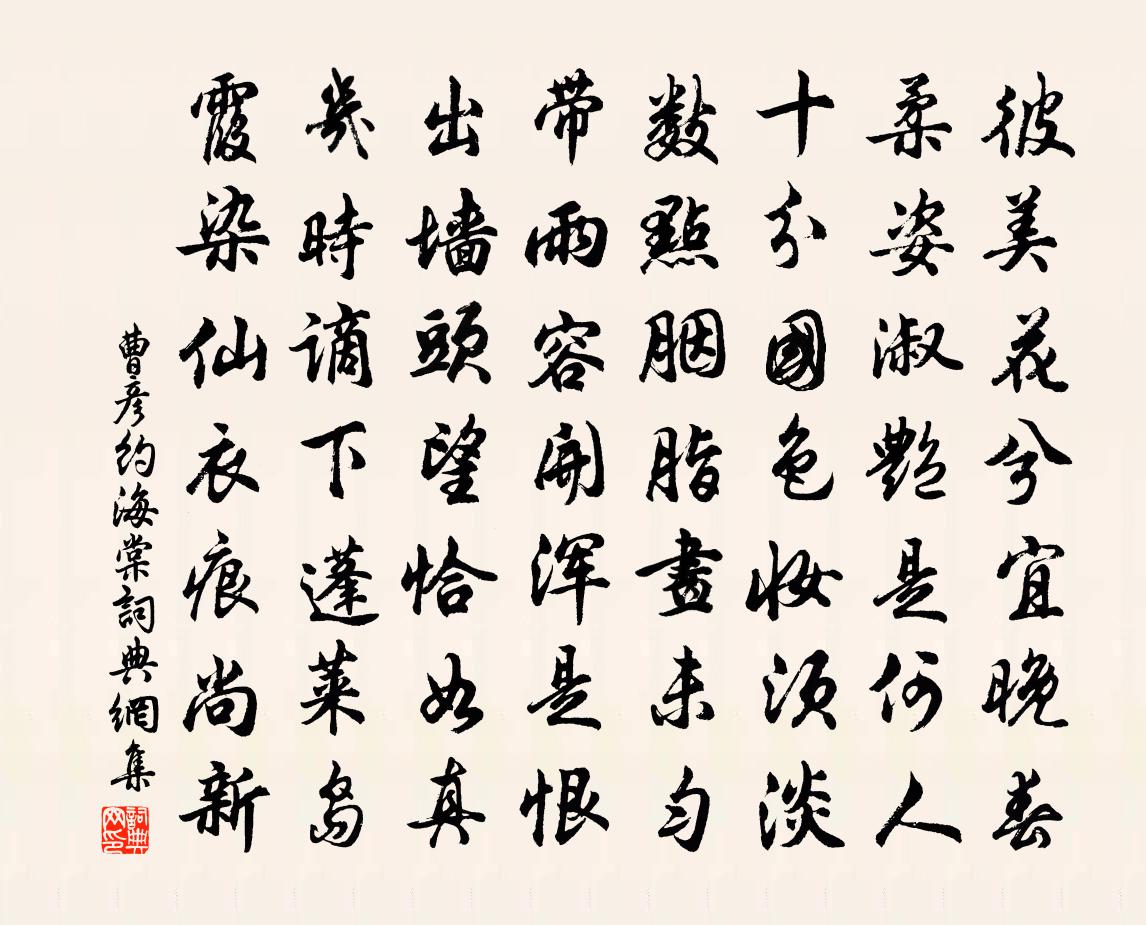 彼美花兮宜晚春
柔姿淑艷是何人
十分國色妝須淡
數點胭脂畫未勻
帶雨容開渾是恨
出墻頭望恰如真
幾時謫下蓬萊島
霞染仙衣痕尚新
曹彥約海棠詞典網集
詞典網印